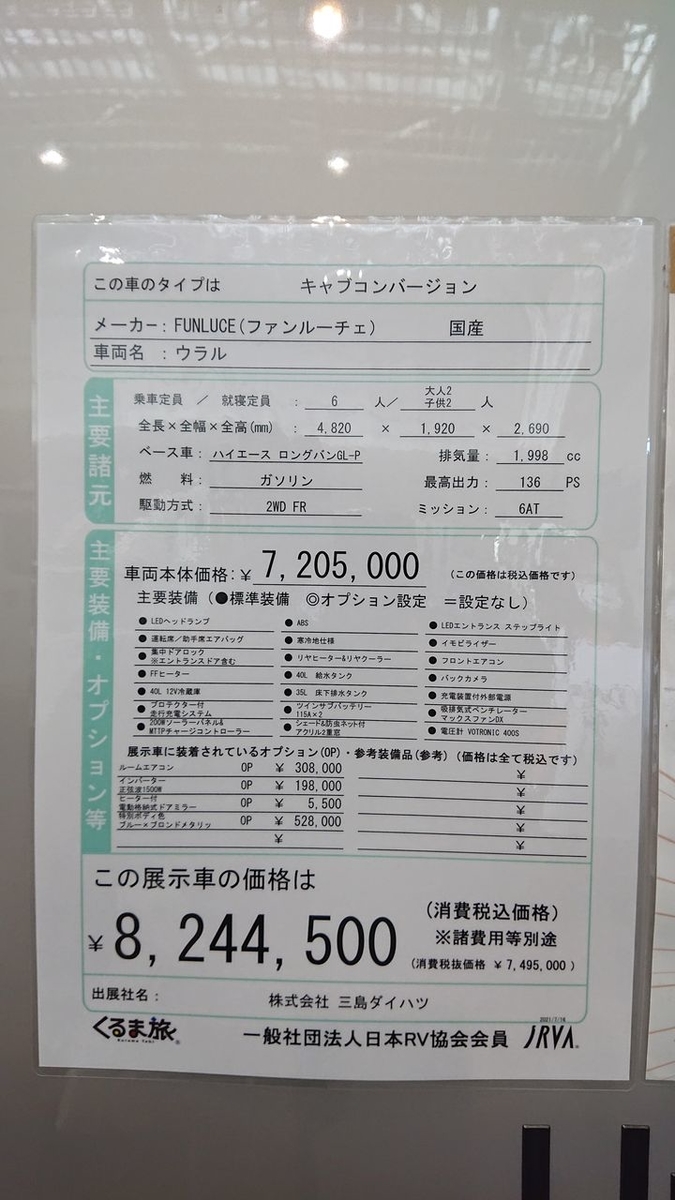 この車のタイプは キャブコンバージョン
メーカー: FUNLUCE(ファンルーチェ) 国産
車両名 : ウラル
主要諸元
乗車定員 / 就寝定員 : 6 人/ 大人2 子供2 人
全長×全幅×全高(mm) : 4,820 × 1,920 × 2,690
ベース車: ハイエース ロングバンGL-P 排気量: 1,998 cc
燃 料: ガソリン 最高出力: 136 PS
駆動方式: 2WD FR ミッション: 6AT
主要装備・オプション等
車両本体価格:¥ 7,205,000 (この価格は税込価格です)
主要装備 (●標準装備 ◎オプション設定 =設定なし)
●LEDヘッドランプ ●ABS ●LEDエントランス ステップライト
●運転席/助手席エアバッグ ●寒冷地仕様 ●イモビライザー
●集中ドアロック ※エントランスドア含む ●リヤヒーター&リヤクーラー ●フロントエアコン
●FFヒーター ●40L 給水タンク ●バックカメラ
●40L 12V冷蔵庫 ●35L 床下排水タンク ●充電装置付外部電源
●プロテクター付 走行充電システム ●ツインサブバッテリー 115A×2 ●吸排気式ベンチレーター マックスファンDX
●200Wソーラーパネル& MTTPチャージコントローラー ●シェード&防虫ネット付 アクリル2重窓 ●電圧計 VOTRONIC 400S
展示車に装着されているオプション(OP)・参考装備品(参考) (価格は全て税込です)
ルームエアコン OP ¥ 308,000 ¥
インバーター 正弦波1500W OP ¥ 198,000 ¥
ヒーター付 電動格納式ドアミラー OP ¥ 5,500 ¥
特別ボディ色 ブルー×ブロンドメタリッ OP ¥ 528,000 ¥
¥ ¥
この展示車の価格は
¥8,244,500 (消費税込価格)
※諸費用等別途
(消費税抜価格 ¥ 7,495,000 )
出展社名: 株式会社 三島ダイハツ
2021/7/16
くるま旅 Kuruma Tabi 一般社団法人日本RV協会会員 JRVA